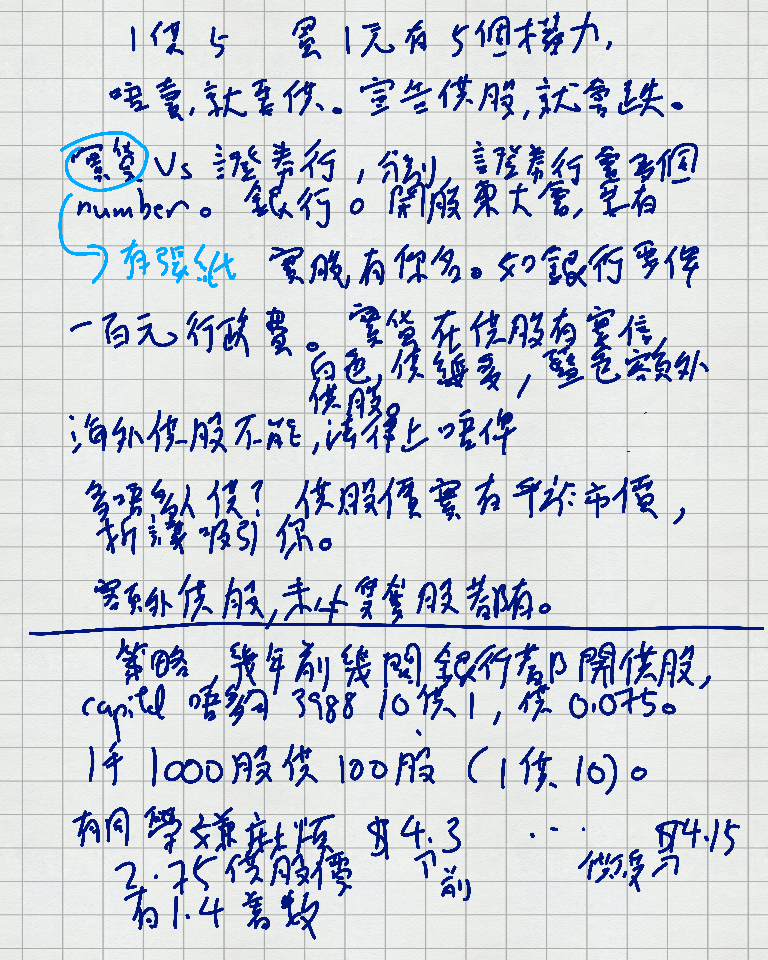 1供5 買1元有5個權力,
唔賣,就要供。宣告供股,就會跌。
實貨 Vs 證券行,分別 證券行會多個
number。銀行。開股東大會,要有
有張紙 實股有你名。如銀行要俾
一百元行政費。實貨在供股有實信
白色供幾多,藍色額外
供股。
海外供股不能,法律上唔俾
多唔多人供?供股價實右平於市價,
折讓吸引你。
額外供股,未必隻隻股都有。
策略,幾年前幾間銀行都開供股,
capital 唔夠 3988 10供1,供0.075。
1手 1000股供100股(1供10)。
有同學嫌麻煩 $4.3 ... $4.15
2.75供股價 前
有1.4着數